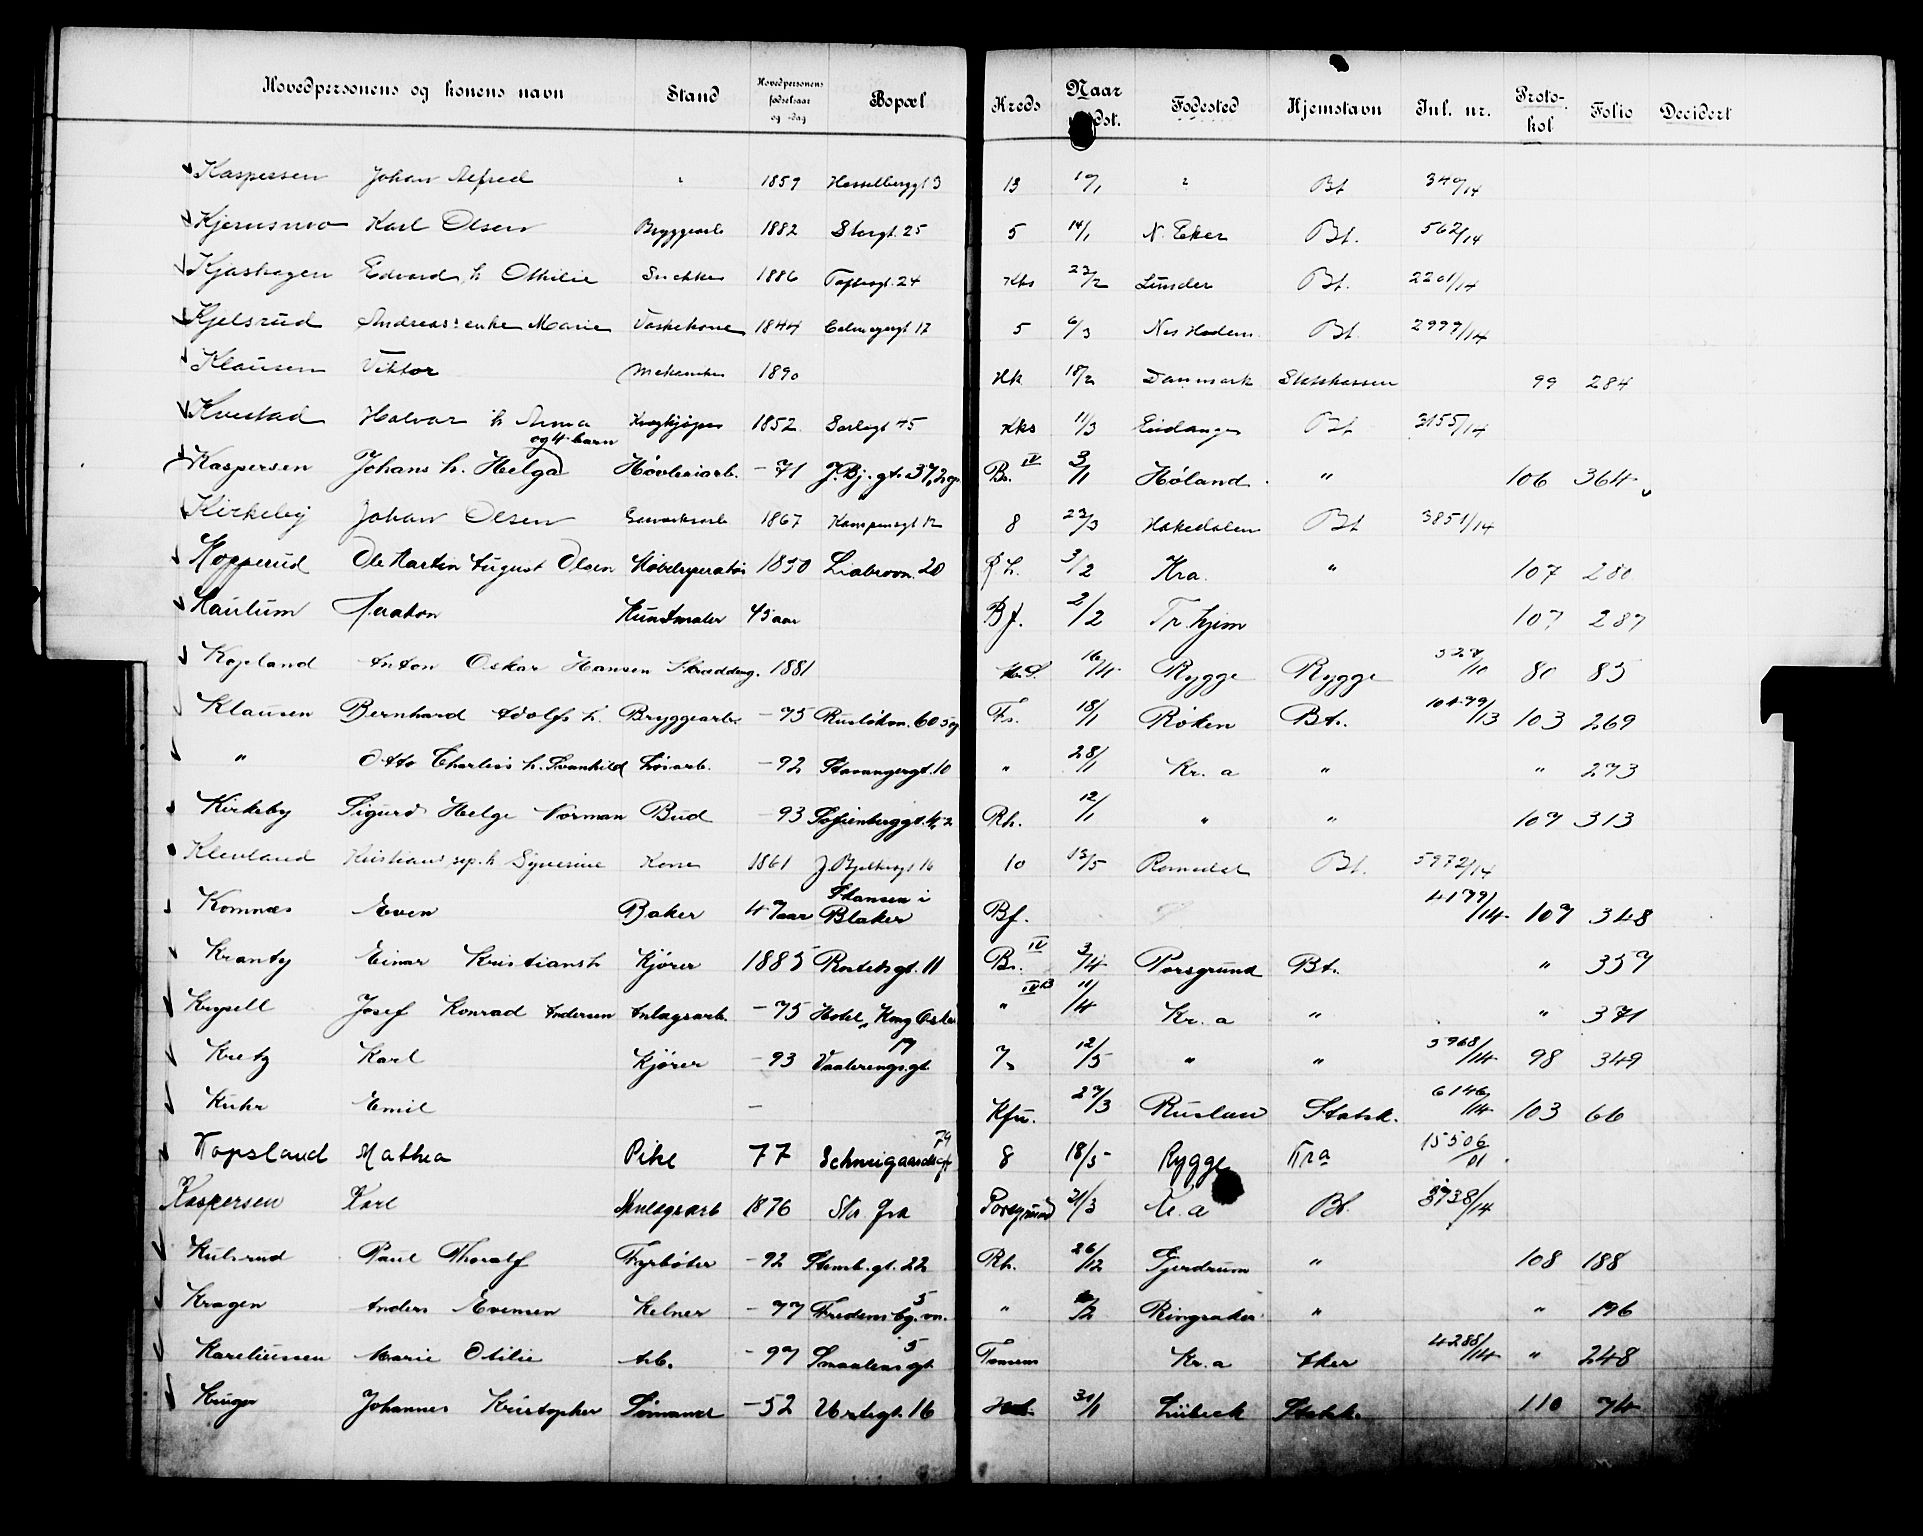 Hovedpersonens og konens navn Stand Hovedpersonens fødselsaar og -dag Bopæl Kreds Naar Fødested Hjemstavn Inl. nr. Proto-kol Folio Decidert
Kaspersen Johan Alfred " 1859 Hesselbergt 3 13 " Bt 340/14
Karl Olsen Bryggearb 1882 Storgt. 25 5 14/1 N. Eker Bt. 562/14
Edvard h Othilie Snekker 1886 Toftesgt. 24 Kks 23/2 Lunder Bt. 2201/14
Kjelsrud Andreas' enke Marie Vaskekone 1844 17 5 6/3 Nes Hedem. Bt. 2999/14
Klausen Viktor Mekaniker 1890 Hk 18/2 Danmark Statskassen 99 284
Kvestad Halvor h Anna 1852 Sorligt 45 Kks 11/3 Eidanger Bt 3155/14
og 4 barn
Kaspersen Johans h. Helga Høvleriarb. - 71 J. Bj. gt. 37, 2 og. Bs. IV 3/1 Høland " 106 364
Kirkeby Johan Olsen Gasverksarb 1867 Kampensgt 12 8 23/3 Hakedalen Bt 3851/14
Kopperud Ole Martin August Olsen 1850 Liabrovn. 20 Rh. 3/2 Kra. " 107 280
Kaulum Kunstmaler 45 aar Bf. 2/2 Tr.hjem 107 287
Kopland Anton Oskar Hansen Skræddersv. 1881 16/4 Rygge Rygge 80 85
Klausen Bernhard Adolfs h. Bryggearb. - 75 Ruseløkvn. 60 5 og Fs. 18/1 Røken Bt. 10479/13 103 269
" Otto Charles's h. Svanhild Løsarb. - 92 Stavangergt. 10 " 28/1 Kr. a " " 273
Kirkeby Sigurd Helge Norman Bud - 93 Sofienberggt. Rh. 12/1 " " 107 313
Klevland Kristians sep. h Syverine Kone 1861 J. Bjelkesgt 16 10 12/5 Romedal Bt. 5972/14
Komnæs Even Baker 47 aar Skansen i Blaker Bf. 4179/14 107 348
Krantz Einar Kristiansh Kjører 1885 Rostedsgt. 11 Bs. IV 3/4 Porsgrund Bt. " 357
Josef Konrad Andersen Anlægsarb. - 75 Hotel "Kong Oskar " 11/4 Kr. a " " 371
Kretz Karl Kjører - 93 Vaalerengsgt 19 7. 12/5 " " 5968/14 98 349
Kuhr Emil - Kfu. 27/3 Rusland Statsk. 6146/14 103 66
Kopsland Mathea Pike 77 Schweigaardsgt 79 8 18/5 Rygge Kra 15506/01
Kaspersen Karl Anlægsarb 1876 Str. fra Porsgrund 21/3 Kr. a Bt. 3738/14
Kulsrud Paul Thoralf Fyrbøter - 92 Steenb. gt. 22 Rh. 26/12 Gjerdrum " 108 188
Kragen Anders Evensen Kelner - 77 Fredensbg. vn. 5 " Ringsaker " " 196
Kareliussen Marie Otilie Arb. - 97 Smaalensgt 5 Tønsens Kr. a Aker 4288/14 " 248
Kruger Johannes Kristopher Sømand - 52 Urtegt. 16 31/1 Lübeck Statsk. 110 74